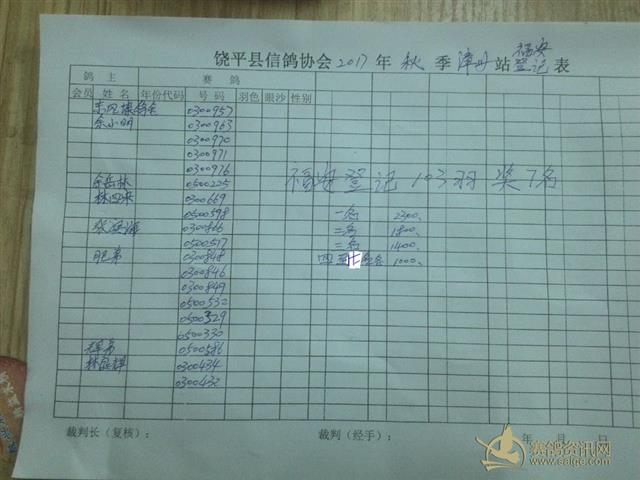 饶平县信鸽协会2017年 秋 季 漳州 站 福安登记表
鸽 主 赛 鸽
会员 姓 名 年份代码 号 码 羽色 眼沙 性别
0300957
余小明 0300963
0300970
0300971
0300976
余岳林 0500225
林四来 0300669
0500598
0300866
0500517
肥弟 0300848
0300846
0300849
0500532
0500329
0500330
辉弟 0500586
0300434
0300432
福安登记103羽 奖7名
一名 2300、
二名 1800、
三名 1400、
四 七名各 1000、
裁判长（复核）： 裁判（经手）： 年 月 日
赛鸽资讯网
www.saige.com